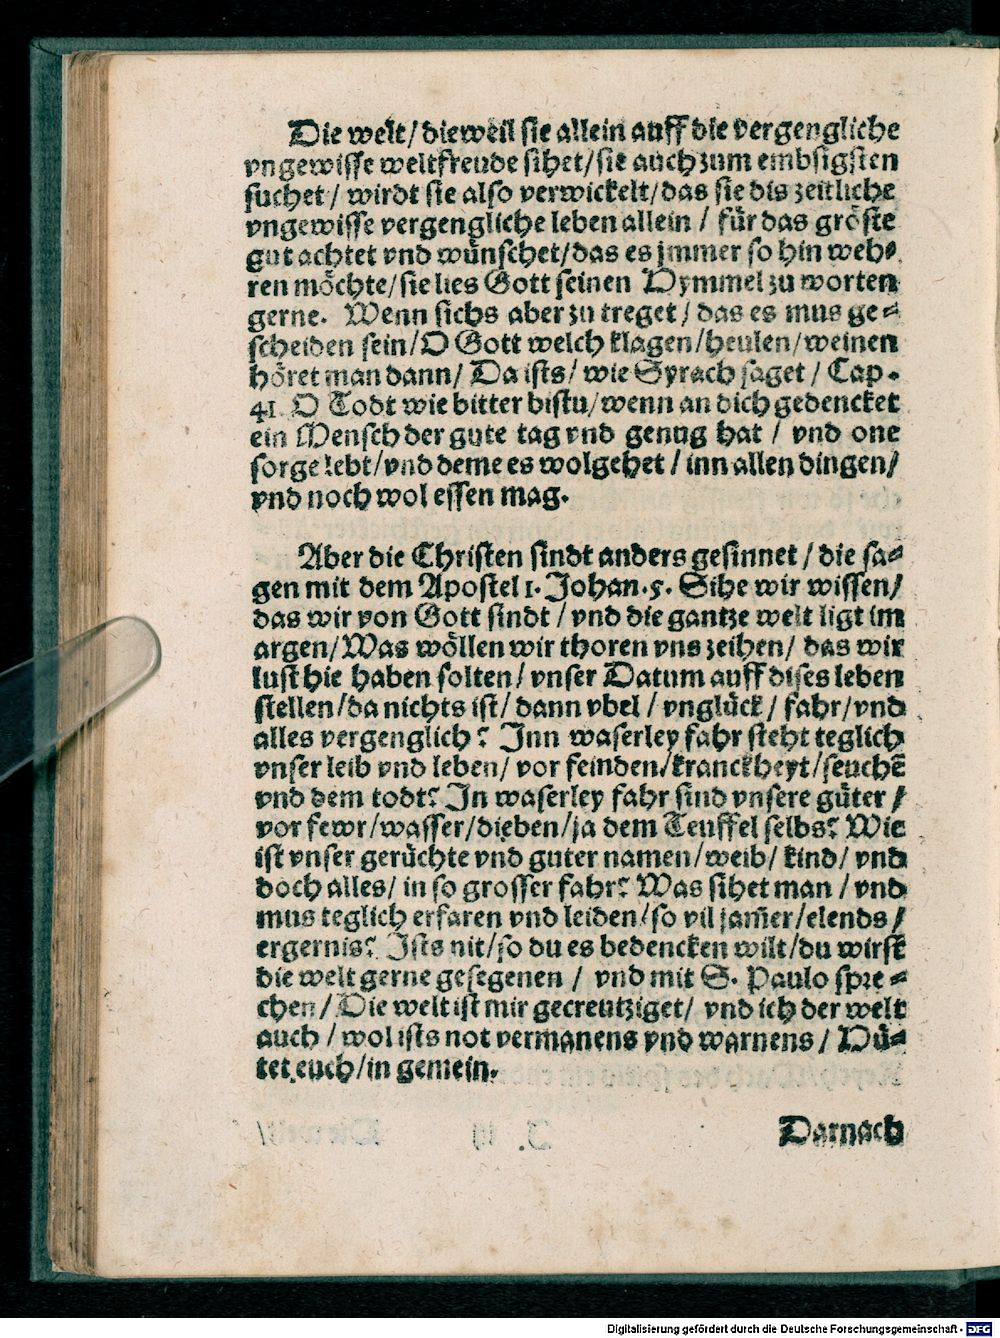 Die welt/dieweil sie allein auff die vergengliche
vngewisse weltfreude sihet/sie auch zum embsigsten
suchet/ wirdt sie also verwickelt/das sie dis zeitliche
vngewisse vergengliche leben allein / für das gröste
gut achtet vnd wünschet/das es jmmer so hin weh⸗
ren möchte/sie lies Gott seinen Hymmel zu worten
gerne. Wenn sichs aber zu treget/ das es mus ge⸗
scheiden sein/O Gott welch klagen/heulen/weinen
höret man dann/ Da ists/ wie Syrach saget / Cap.
41. O Todt wie bitter bistu/wenn an dich gedencket
ein Mensch der gute tag vnd genug hat / vnd one
sorge lebt/vnd deme es wolgehet / inn allen dingen/
vnd noch wol essen mag.
Aber die Christen sindt anders gesinnet / die sa⸗
gen mit dem Apostel 1. Johan. 5. Sihe wir wissen/
das wir von Gott sindt / vnd die gantze welt ligt im
argen/Was wöllen wir thoren vns zeihen/ das wir
lust hie haben solten/ vnser Datum auff dises leben
stellen/da nichts ist/ dann vbel / vnglück/ fahr/vnd
alles vergenglich? Inn waserley fahr steht teglich
vnser leib vnd leben/ vor feinden/kranckheyt/seuchē
vnd dem todt? In waserley fahr sind vnsere güter /
vor fewr/wasser/dieben/ja dem Teuffel selbs? Wie
ist vnser gerüchte vnd guter namen/weib/ kind/ vnd
doch alles/ in so grosser fahr? Was sihet man / vnd
mus teglich erfaren vnd leiden/so vil jam̃er/elends/
ergernis? Ists nit/so du es bedencken wilt/du wirst
die welt gerne gesegenen / vnd mit S. Paulo spre⸗
chen/Die welt ist mir gecreutziget/ vnd ich der welt
auch / wol ists not vermanens vnd warnens / Hü⸗
tet euch/in gemein.
Darnach
Digitalisierung gefördert durch die Deutsche Forschungsgemeinschaft - DFG